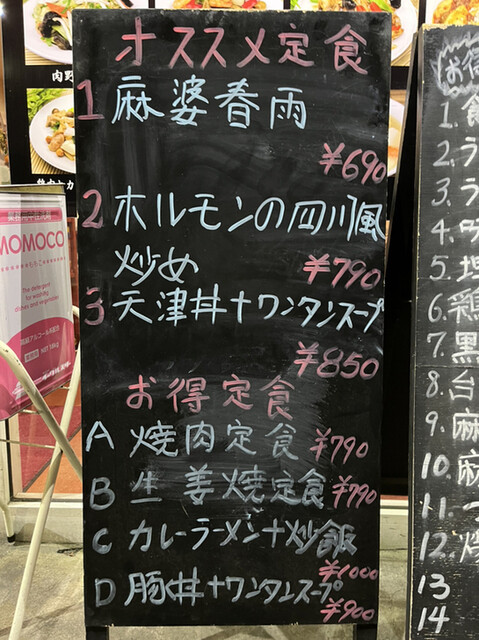 オススメ定食
1 麻婆春雨
¥690
2 ホルモンの四川風
炒め ¥790
3 天津丼+ワンタンスープ
¥850
お得定食
A 焼肉定食 ¥790
B 生姜焼定食 ¥790
C カレーラーメン+炒飯
¥1000
D 豚丼+ワンタンスープ
¥900
MOMOCO
お得
1.
2. ラ
3. ラ
4.
5. 坦
6. 鶏
7. 黒
8. 台
9. 麻
10. 麻
11.
12.
13
14